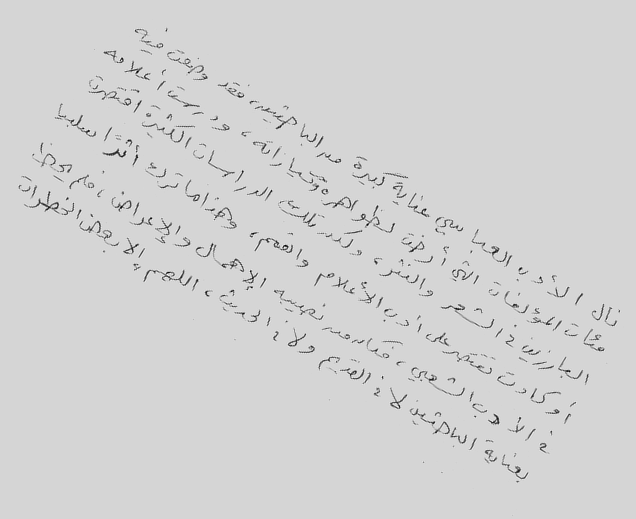 نال الأدب العباسي عناية كبيرة من الباحثين، فقد وضعت فيه
مئات المؤلفات التي أرخت لظواهره وتياراته، ودرست أعلامه
البارزين في الشعر والنثر، ولكن تلك الدراسات الكثيرة اقتصرت
أو كادت تقتصر على أدب الأعلام والقمم، وهذا ما ترك أثرًا سلبيا
في الأدب الشعبي، فكان من نصيبه الإهمال والإعراض، فلم يحظ
بعناية الباحثين لا في القديم ولا في الحديث، اللهم إلا بعض الخطرات